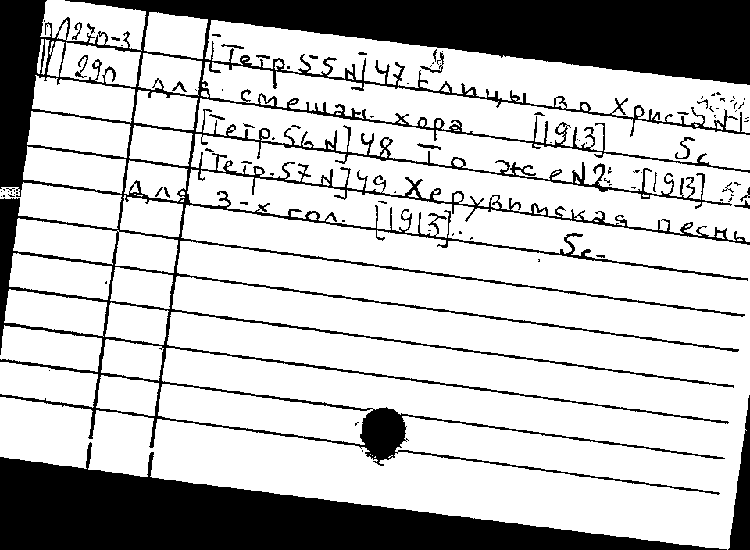 270-3 [Тетр. 55 N] 47. Елицы во Христа N 1
290 для смешан. хора. [1913] 5 с.
[Тетр. 56 N] 48 То же N 2. [1913] 5 с.
[Тетр. 57 N] 49. Херувимская песнь
для 3-х гол. [1913]. 5 с.